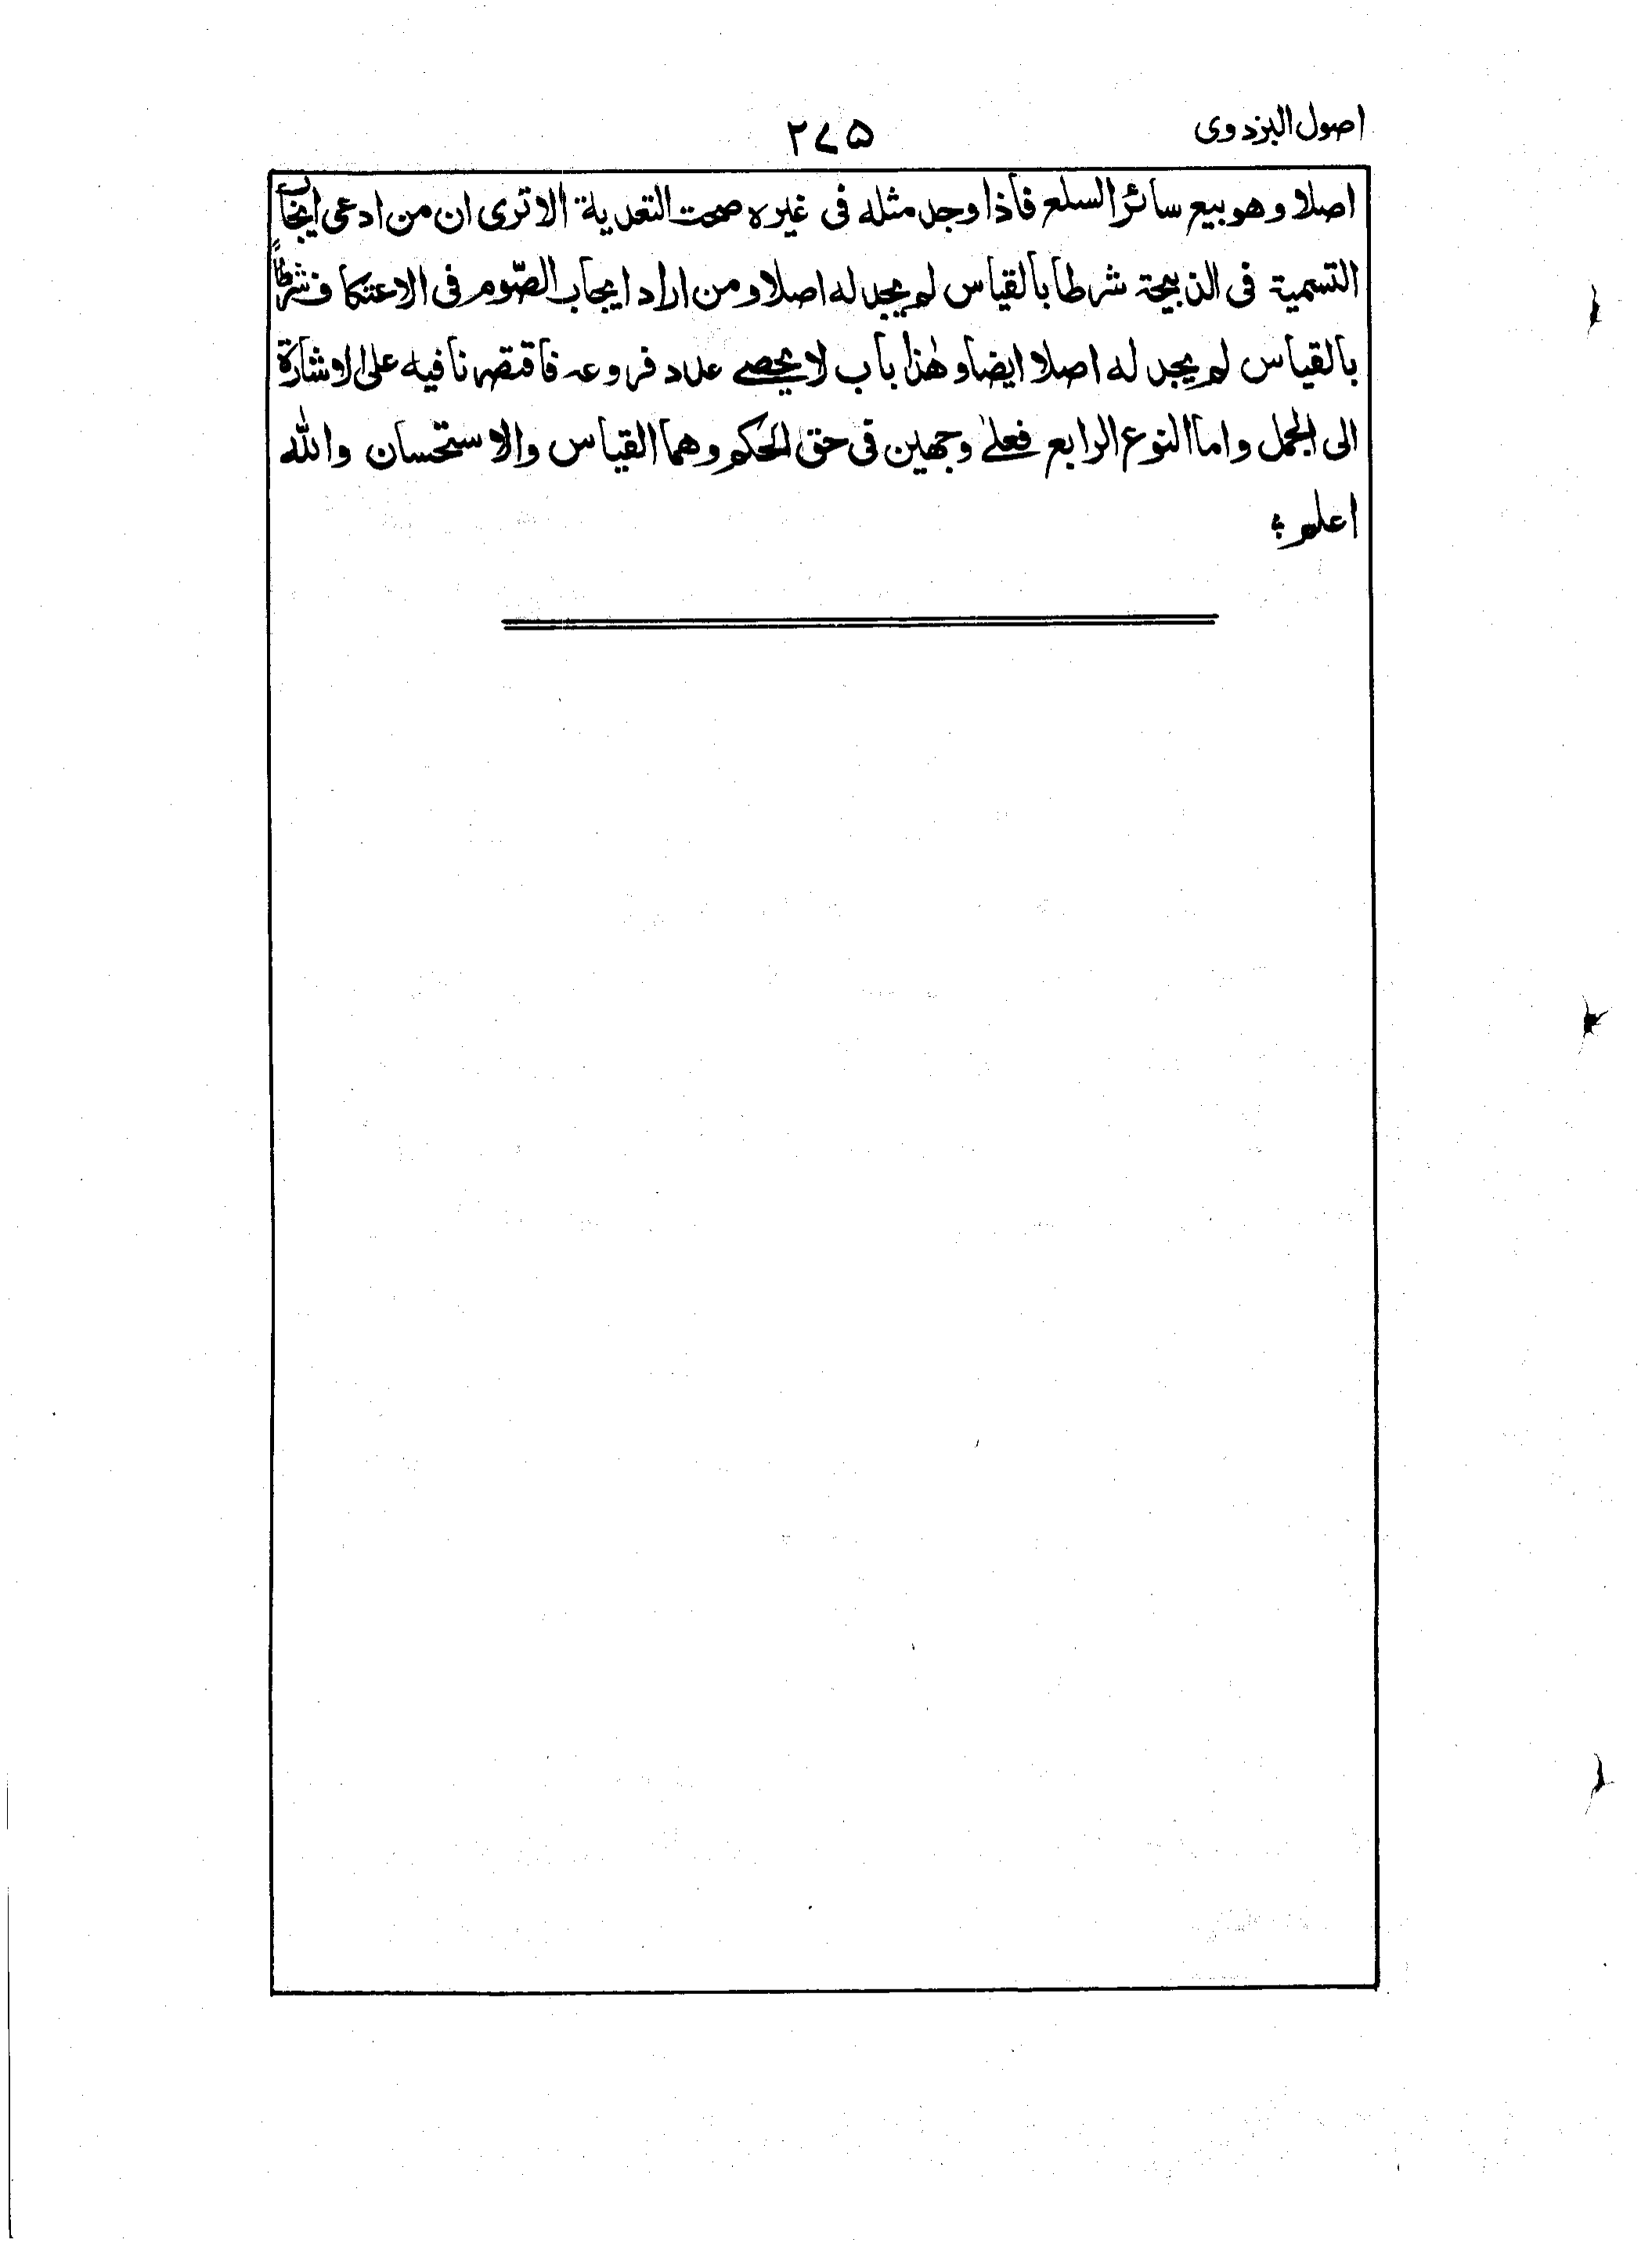 اصول البزدوی
۲۷۵
اصلا وهو بیع سائر السلع فاذا وجد مثله فی غیره صحت التعدیة الا تری ان من ادعی ایجاب
التسمیة فی الذبیحة شرطا بالقیاس لم یجد له اصلا ومن اراد ایجاب الصّوم فی الاعتکاف شرطاً
بالقیاس لم یجد له اصلا ایضا وهٰذا باب لا یحصے عدد فروعه فاقتصرنا فیه علی الاشارة
الی الجمل واما النوع الرابع فعلےٰ وجهین فی حق الحکم وهما القیاس والاستحسان والله
اعلم ؛